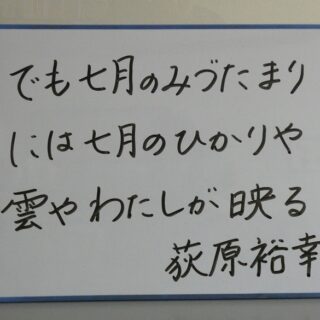 でも七月のみづたまり
には七月のひかりや
雲やわたしが映る
荻原裕幸